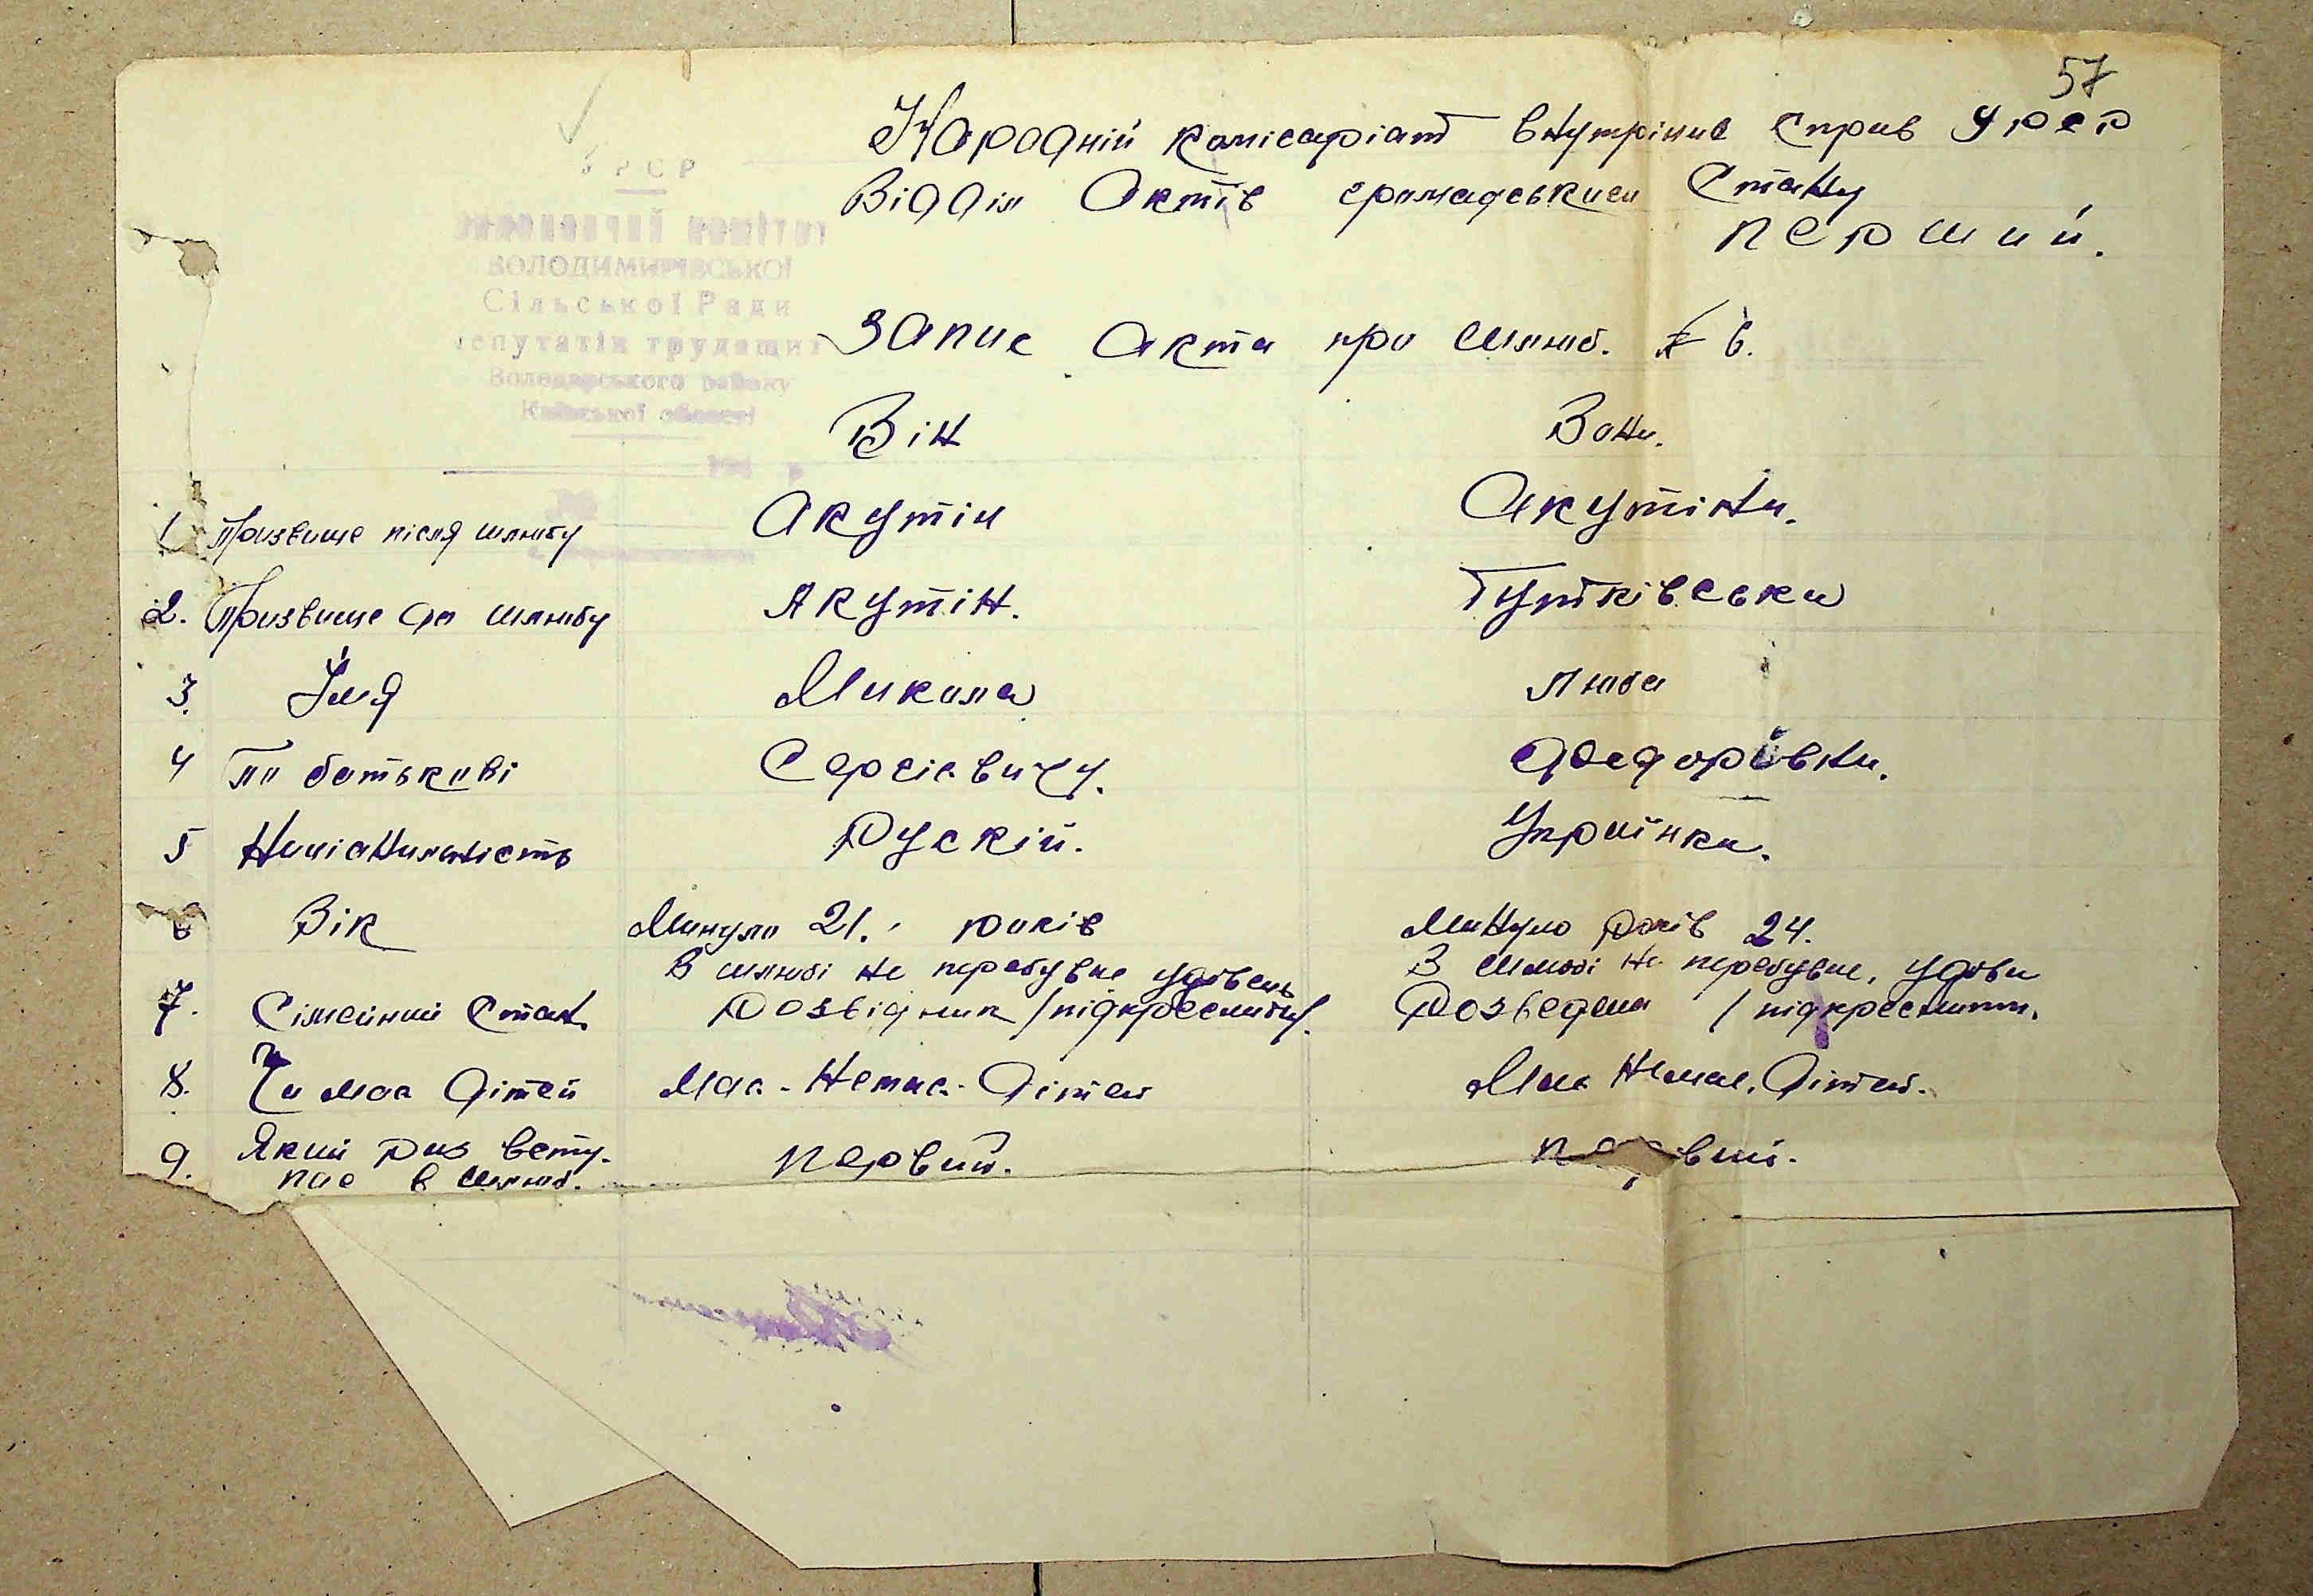 57
Народній комісаріат внутрінис справ УРСР
Відділ Актів громадськиси Стану
перший.
УРСР
виконавчий комітет
ВОЛОДИМИРІВСЬКОЇ
Сільської Ради
депутатів трудящих
Володарського району
Київської області
194 р.
Запис Акта при шлюб. № 6.
Він Вона.
1 Призвище після шлюбу Акутін Акутіна.
2. Призвище до шлюбу Акутін. Гутківська
3. Імя Микола Люба
4 По батькові Сергієвич. Федорівна.
5 Націанальність Рускій. Українка.
6 Вік Минуло 21. років Минуло років 24.
7. Сімейний Стан. В шлюбі не перебуває удівець В шлюбі не перебуває, удова
Розвідник /підкреслити/. Розведена /підкреслити.
8. Чи має Дітей Має - Немає - Дітей Має Немає. Дітей.
9. Який раз всту- Первий. Первий.
пає в шлюб.